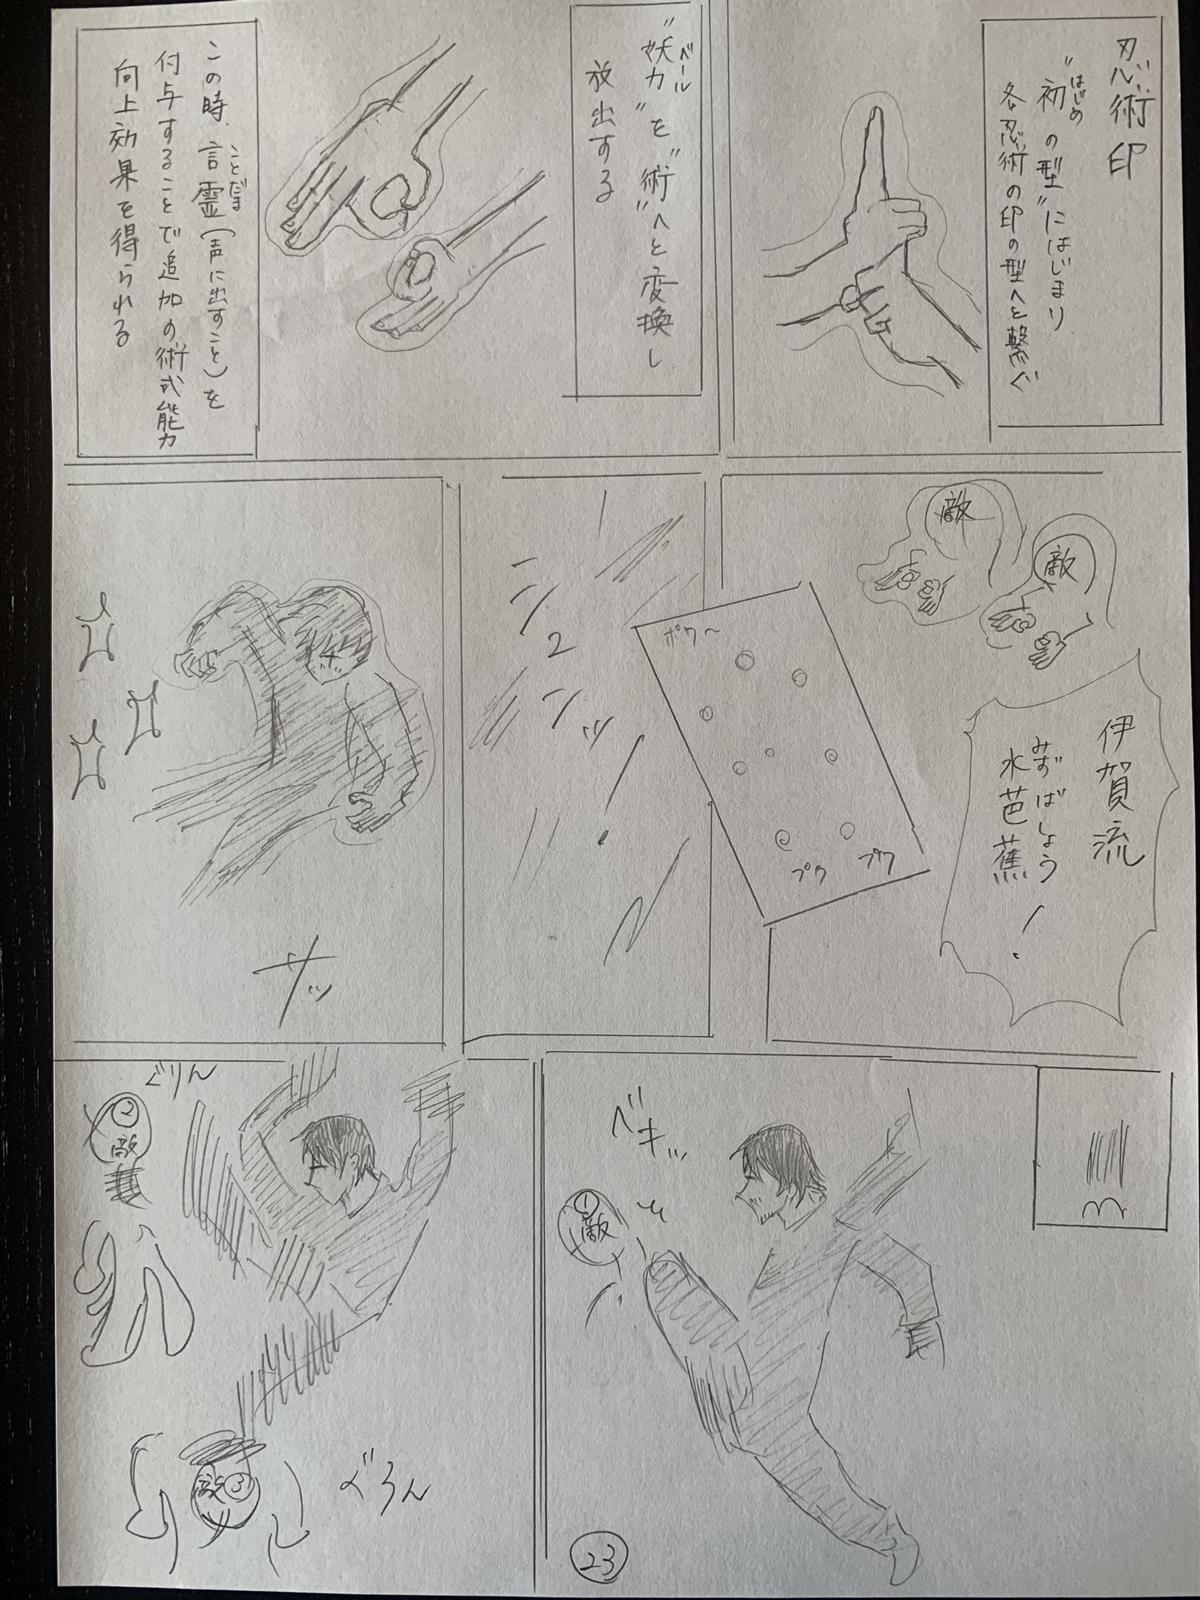 忍術印
"初の型"にはじまり
はじめ
各忍術の印の型へと繋ぐ
"妖力"を"術"へと変換し
ベール
放出する
この時、言霊(声に出すこと)を
ことだま
付与することで追加の術式能力
向上効果を得られる
敵
敵
伊賀流
水芭蕉!
みずばしょう
ポワ〜
プク
プク
シュンッ
サッ
ベキッ
①
敵
ぐりん
②
敵
敵③
ぐろん
23